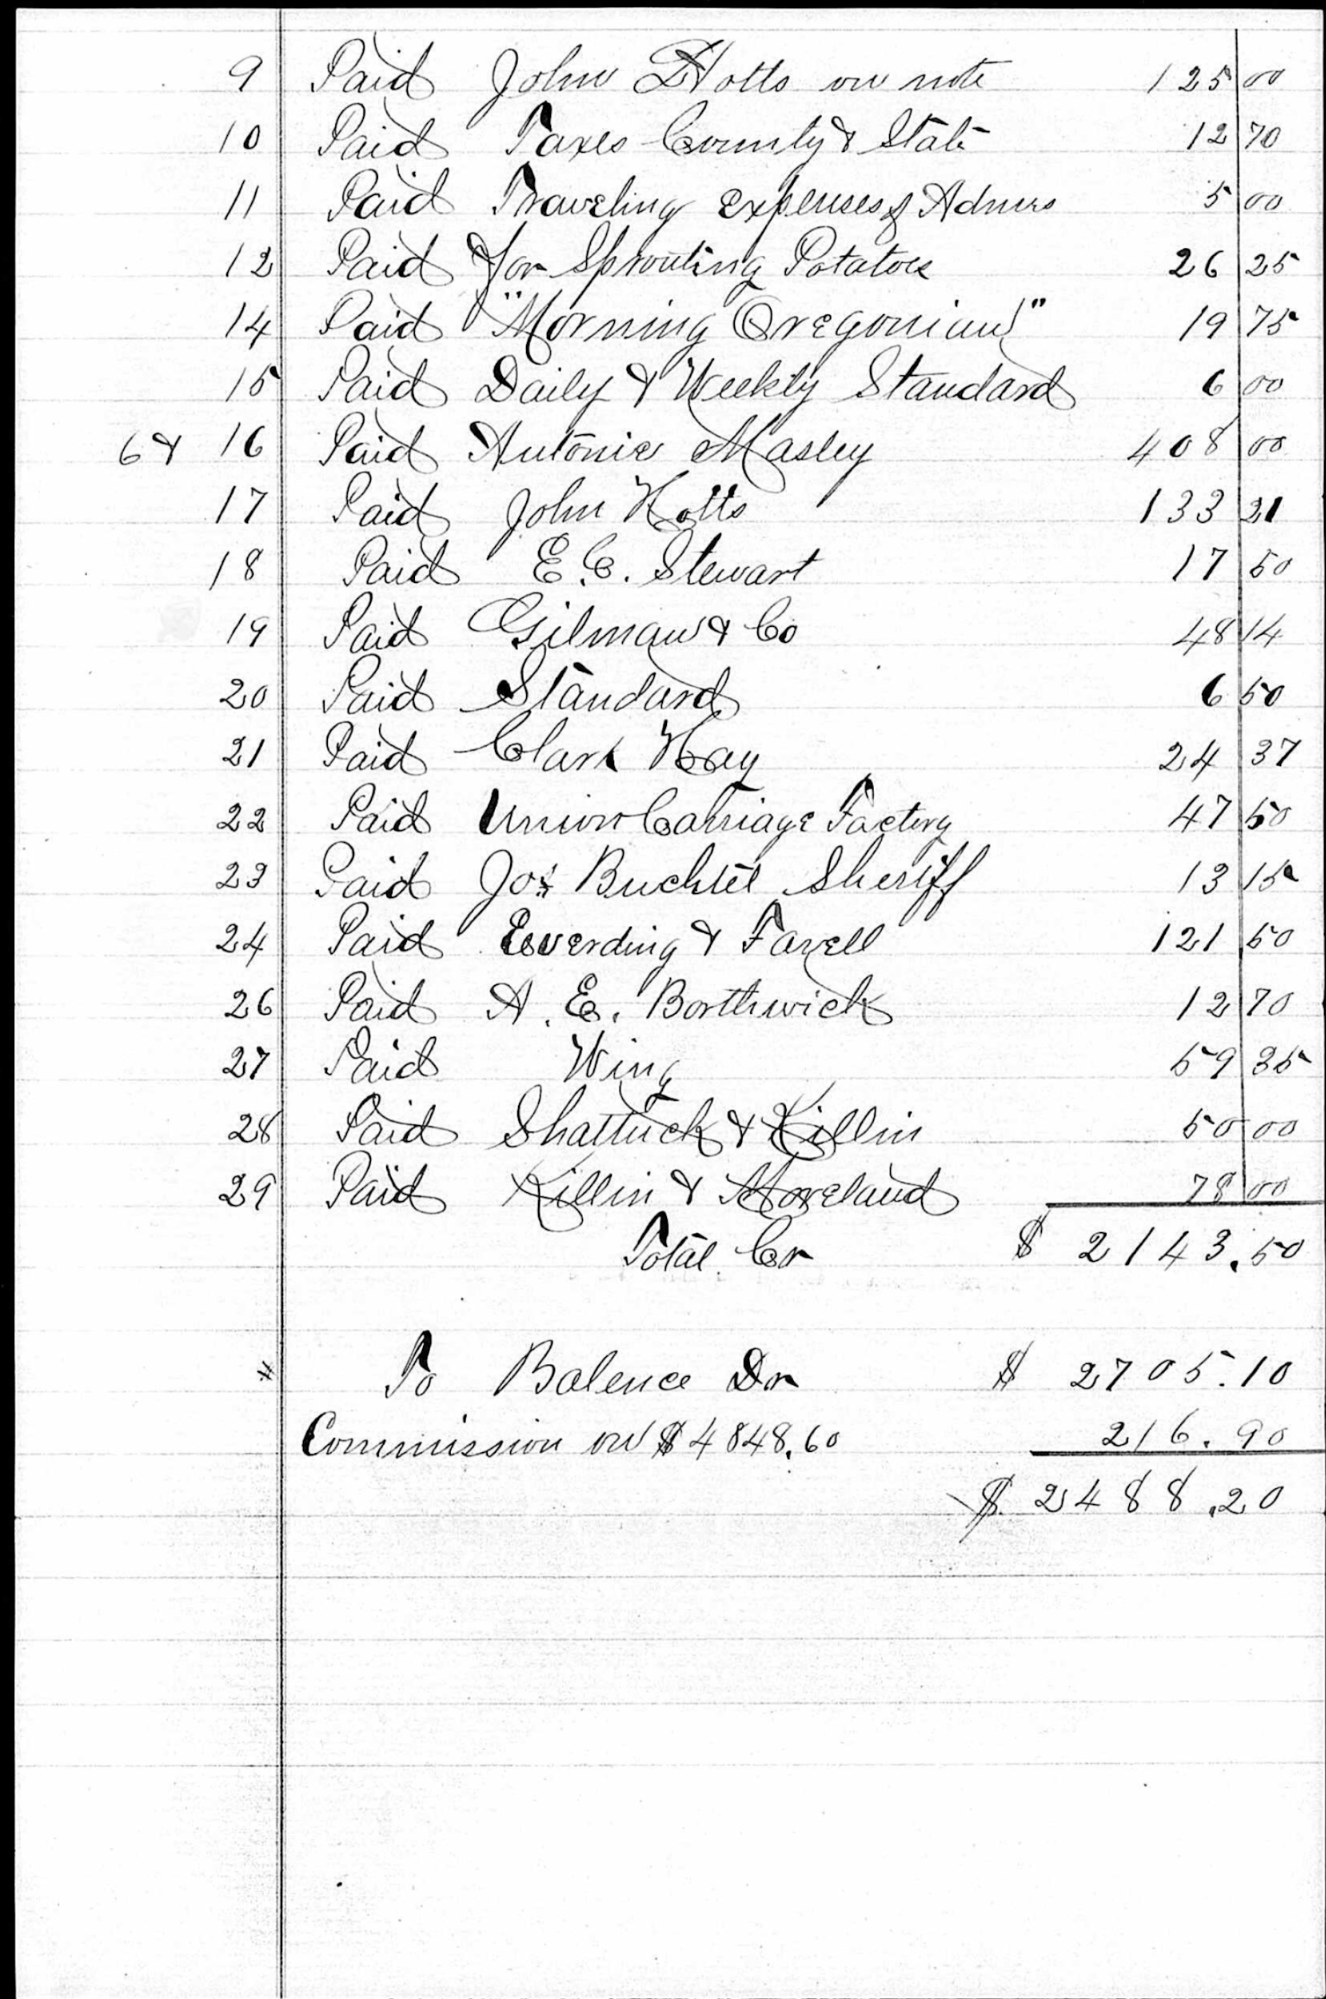 9 Paid John Hotts on note 125 00
10 Paid Taxes County & State 12 70
11 Paid Traveling expenses of Admrs 5 00
12 Paid for Sprouting Potatoes 26 25
14 Paid "Morning Oregonian" 19 75
15 Paid Daily & Weekly Standard 6 00
6 & 16 Paid Antonie Masley 408 00
17 Paid John Hotts 133 21
18 Paid E. C. Stewart 17 50
19 Paid Gilman & Co 48 14
20 Paid Standard 6 50
21 Paid Clark Hay 24 37
22 Paid Union Carriage Factory 47 50
23 Paid Jos Buchtel Sheriff 13 15
24 Paid Everding & Farell 121 50
26 Paid A. E. Borthwick 12 70
27 Paid Wing 59 35
28 Paid Shattuck & Killin 50 00
29 Paid Killin & Moreland 78 00
Total Cr $ 2143.50
To Balence Dr $ 2705.10
Commission on $4848.60 216.90
$ 2488.20